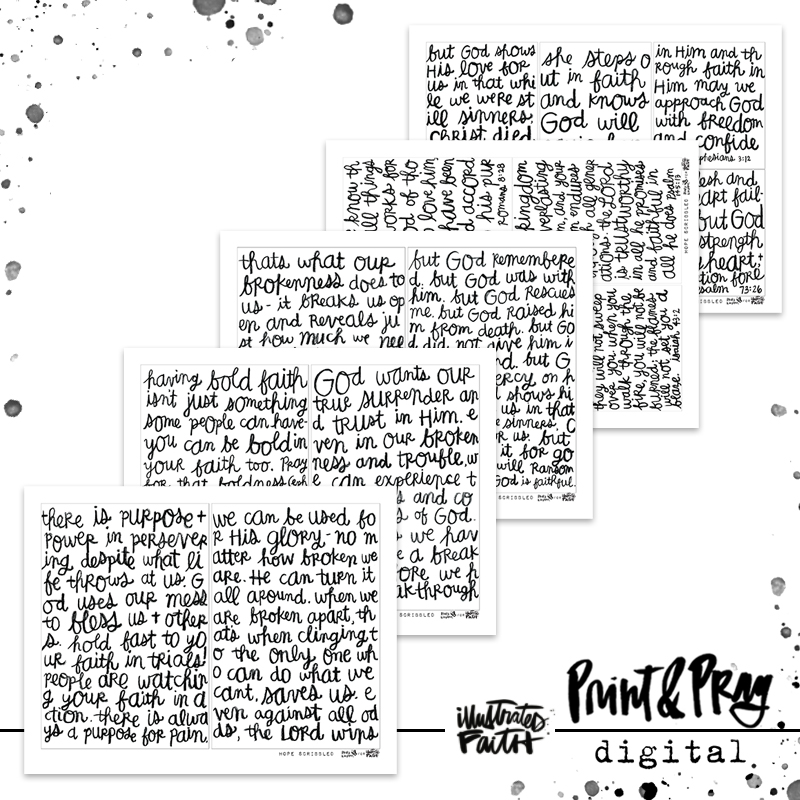 but God shows
His love for
us in that whi
le we were st
ill sinners,
Christ died
she steps o
ut in faith
and knows
God will
in Him and th
rough faith in
Him may we
approach God
with freedom
and confide
Ephesians 3:12
esh and
eart fail
but God
strength
heart, +
tion fore
Psalm 73:26
SCRIBBLED
know th
ll things
works for
od of tho
love him,
have been
d accord
his pur
Romans 8:28
kingdom
everlasting
m, and your
m endures
h all gener
ations. the LORD
is trustworthy
in all he promises
and faithful in
all he does Psalm
145:13
HOPE SCRIBBLED
they will not sweep
over you. when you
walk through the
fire, you will not be
burned; the flames
will not set you a
blaze. Isaiah 43:2
thats what our
brokenness does to
us - it breaks us op
en and reveals ju
st how much we nee
but God remembere
d. but God was with
him. but God rescues
me. but God raised hi
m from death. but Go
d did not give him i
d. but G
ercy on h
d shows hi
us in that
sinners, C
r us. but
it for go
will ransom
God is faithful.
having bold faith
isn't just something
some people can have-
you can be bold in
your faith too. Pray
for that boldness
God wants our
true surrender an
d trust in Him. e
ven in our broken
ness and trouble, w
e can experience t
and co
s of God.
we hav
e a break
ore we h
ak-through
SCRIBBLED
there is purpose +
power in persever
ing, despite what li
fe throws at us. G
od uses our mess
to bless us + other
s. hold fast to yo
ur faith in trials!
people are watchin
g your faith in a
ction. there is alwa
ys a purpose for pain.
we can be used, fo
r His glory - no m
atter how broken we
are. He can turn it
all around. when we
are broken apart, th
ats when clinging t
o the only one wh
o can do what we
cant, saves us. e
ven against all od
ds, the LORD wins
HOPE SCRIBBLED
illustrated
FAITH
Print & Pray
digital